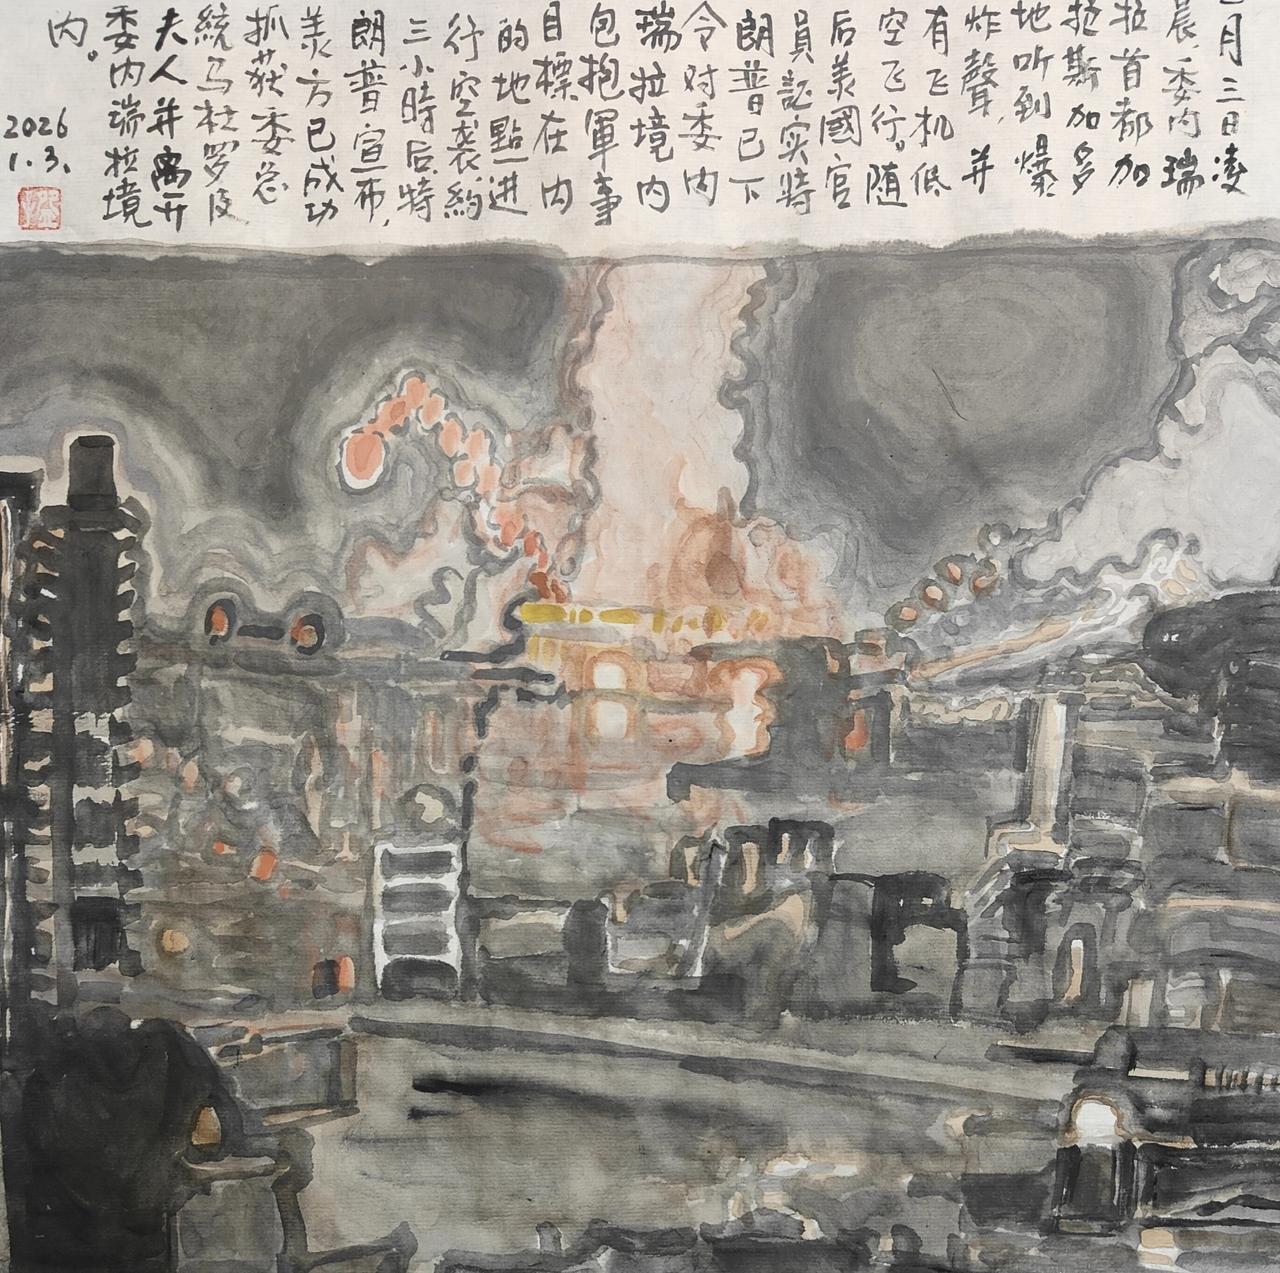 月三日凌
晨,委内瑞
拉首都加
拉斯加多
地听到爆
炸聲,并
有飞机低
空飞行。随
后美國官
員証实特
朗普已下
令对委内
瑞拉境内
包抱軍事
目標在内
的地點进
行空袭,約
三小時后,特
朗普宣布,
美方已成功
抓获委总
統马杜罗及
夫人并离开
委内瑞拉境
内。
2026
1.3.